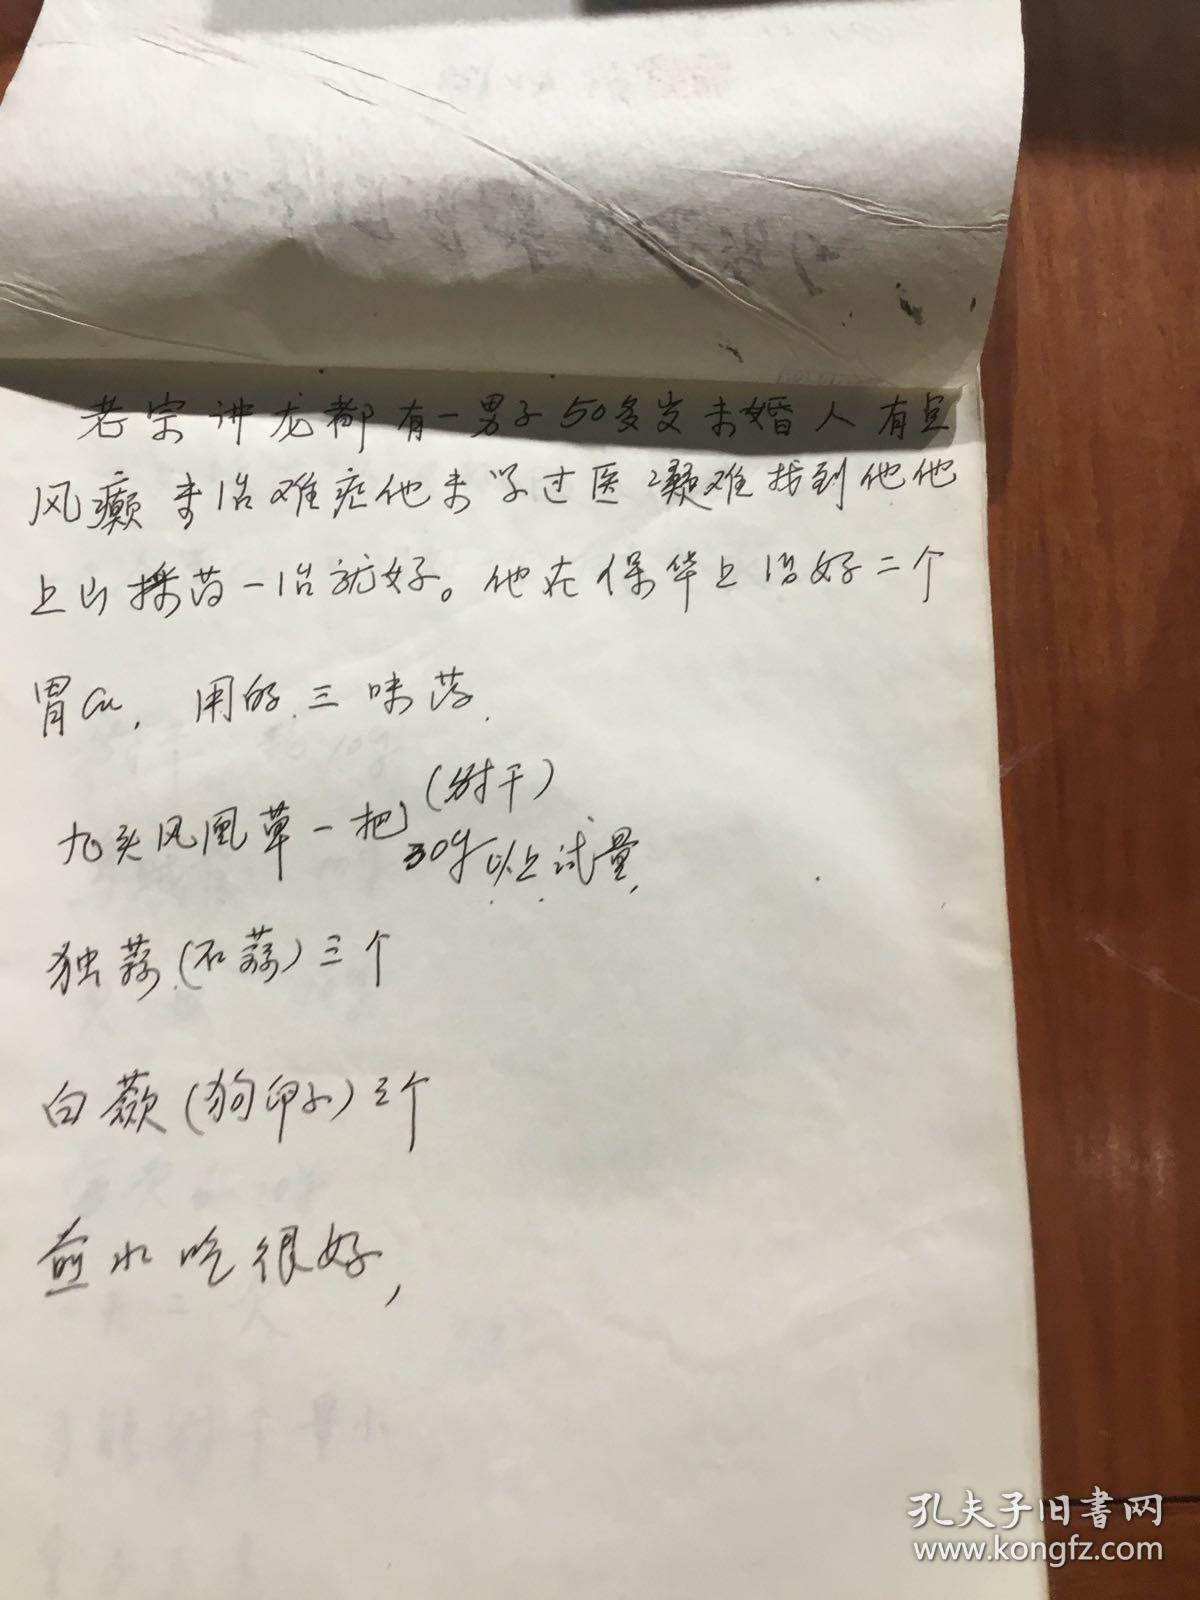 老宗讲龙都有一男子50多岁未婚人有点
风癫专治难症他未学过医疑难找到他他
上山採药一治就好。他在保华上治好二个
胃Ca，用的三味药.
九头风凰草一把(射干)
30g以上试量,
独蒜(石蒜)三个
白蔹(狗卵子)三个
煎水吃很好,
孔夫子旧书网
www.kongfz.com